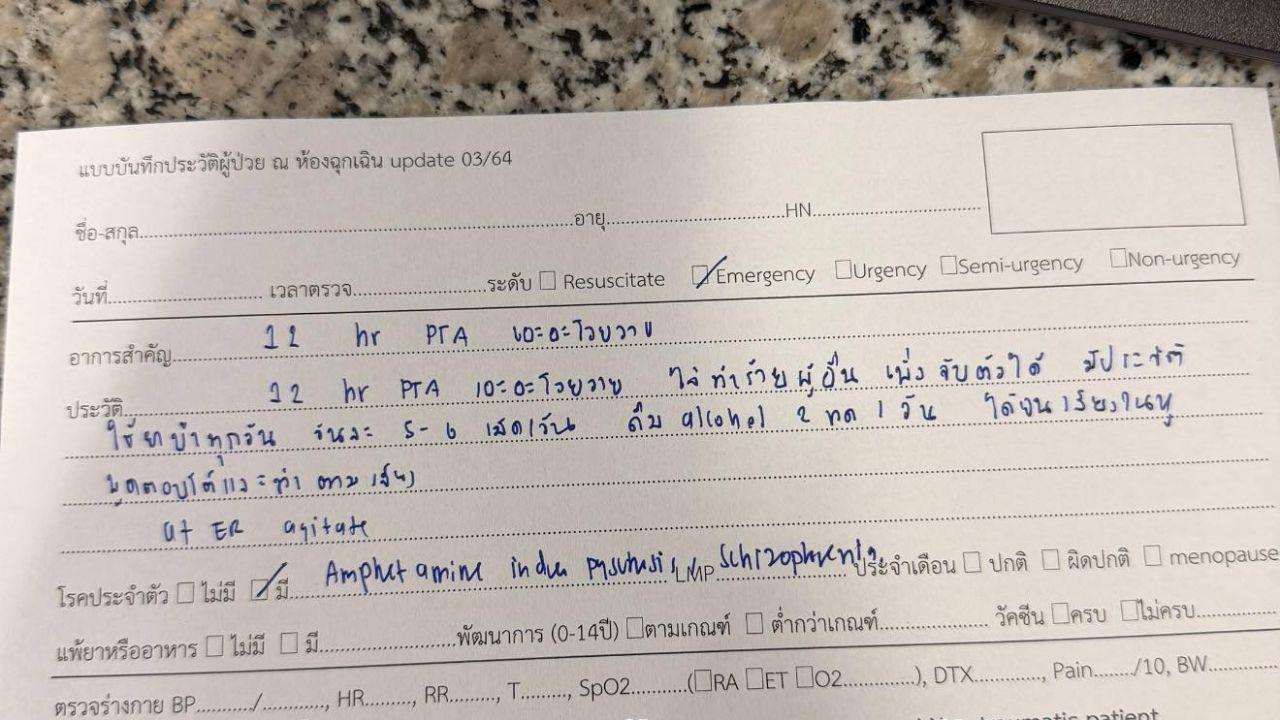 แบบบันทึกประวัติผู้ป่วย ณ ห้องฉุกเฉิน update 03/64
ชื่อ-สกุล..........อายุ..........HN..........
วันที่.......... เวลาตรวจ..........ระดับ ☐ Resuscitate ☑ Emergency ☐ Urgency ☐ Semi-urgency ☐ Non-urgency
อาการสำคัญ 12 hr PTA เอะอะโวยวาย
ประวัติ 12 hr PTA เอะอะโวยวาย ไล่ทำร้ายผู้อื่น เพิ่งจับตัวได้ มีประวัติ
ใช้ยาบ้าทุกวัน วันละ 5-6 เม็ด/วัน ดื่ม alcohol 2 วัน ได้ยินเสียงในหู
พูดตอบโต้และทำตามเสียง
at ER agitate
โรคประจำตัว ☐ ไม่มี ☑ มี Amphetamine induce psychosis, Schizophrenia LMP ประจำเดือน ☐ ปกติ ☐ ผิดปกติ ☐ menopause
แพ้ยาหรืออาหาร ☐ ไม่มี ☐ มี..........พัฒนาการ (0-14ปี) ☐ ตามเกณฑ์ ☐ ต่ำกว่าเกณฑ์.......... วัคซีน ☐ ครบ ☐ ไม่ครบ..........
ตรวจร่างกาย BP........../.........., HR.........., RR.........., T.........., SpO2..........(☐RA ☐ET ☐O2..........), DTX.........., Pain........../10, BW..........
patient